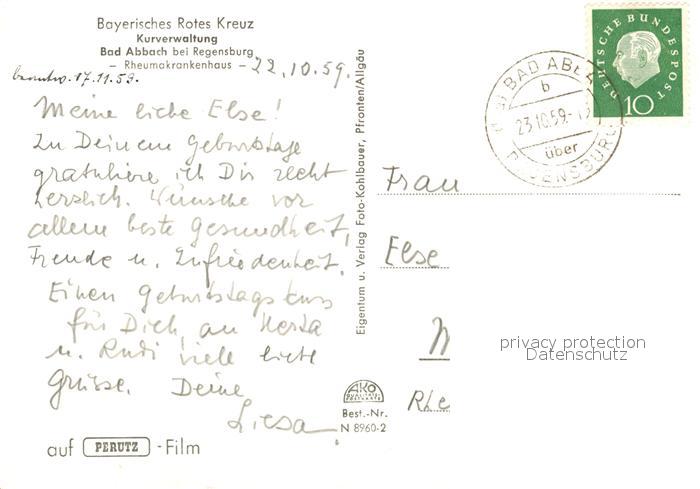 Bayerisches Rotes Kreuz
Kurverwaltung
Bad Abbach bei Regensburg
– Rheumakrankenhaus –
22.10.59.
beantw. 17.11.59.
Meine liebe Else!
Zu Deinem Geburtstage
gratuliere ich Dir recht
herzlich. Wünsche vor
allem beste Gesundheit,
Freude u. Zufriedenheit.
Einen Geburtstagskuss
für Dich, an Herta
u. Rudi viele liebe
Grüsse. Deine
Liesa
auf PERUTZ -Film
Eigentum u. Verlag Foto-Kohlbauer, Pfronten/Allgäu
AKO
QUALITÄTS
POSTKARTE
Best.-Nr.
N 8960-2
DEUTSCHE BUNDESPOST
10
BAD ABB
b
23.10.59.-
über
REGENSBURG
Frau
Else
Rhe
privacy protection
Datenschutz